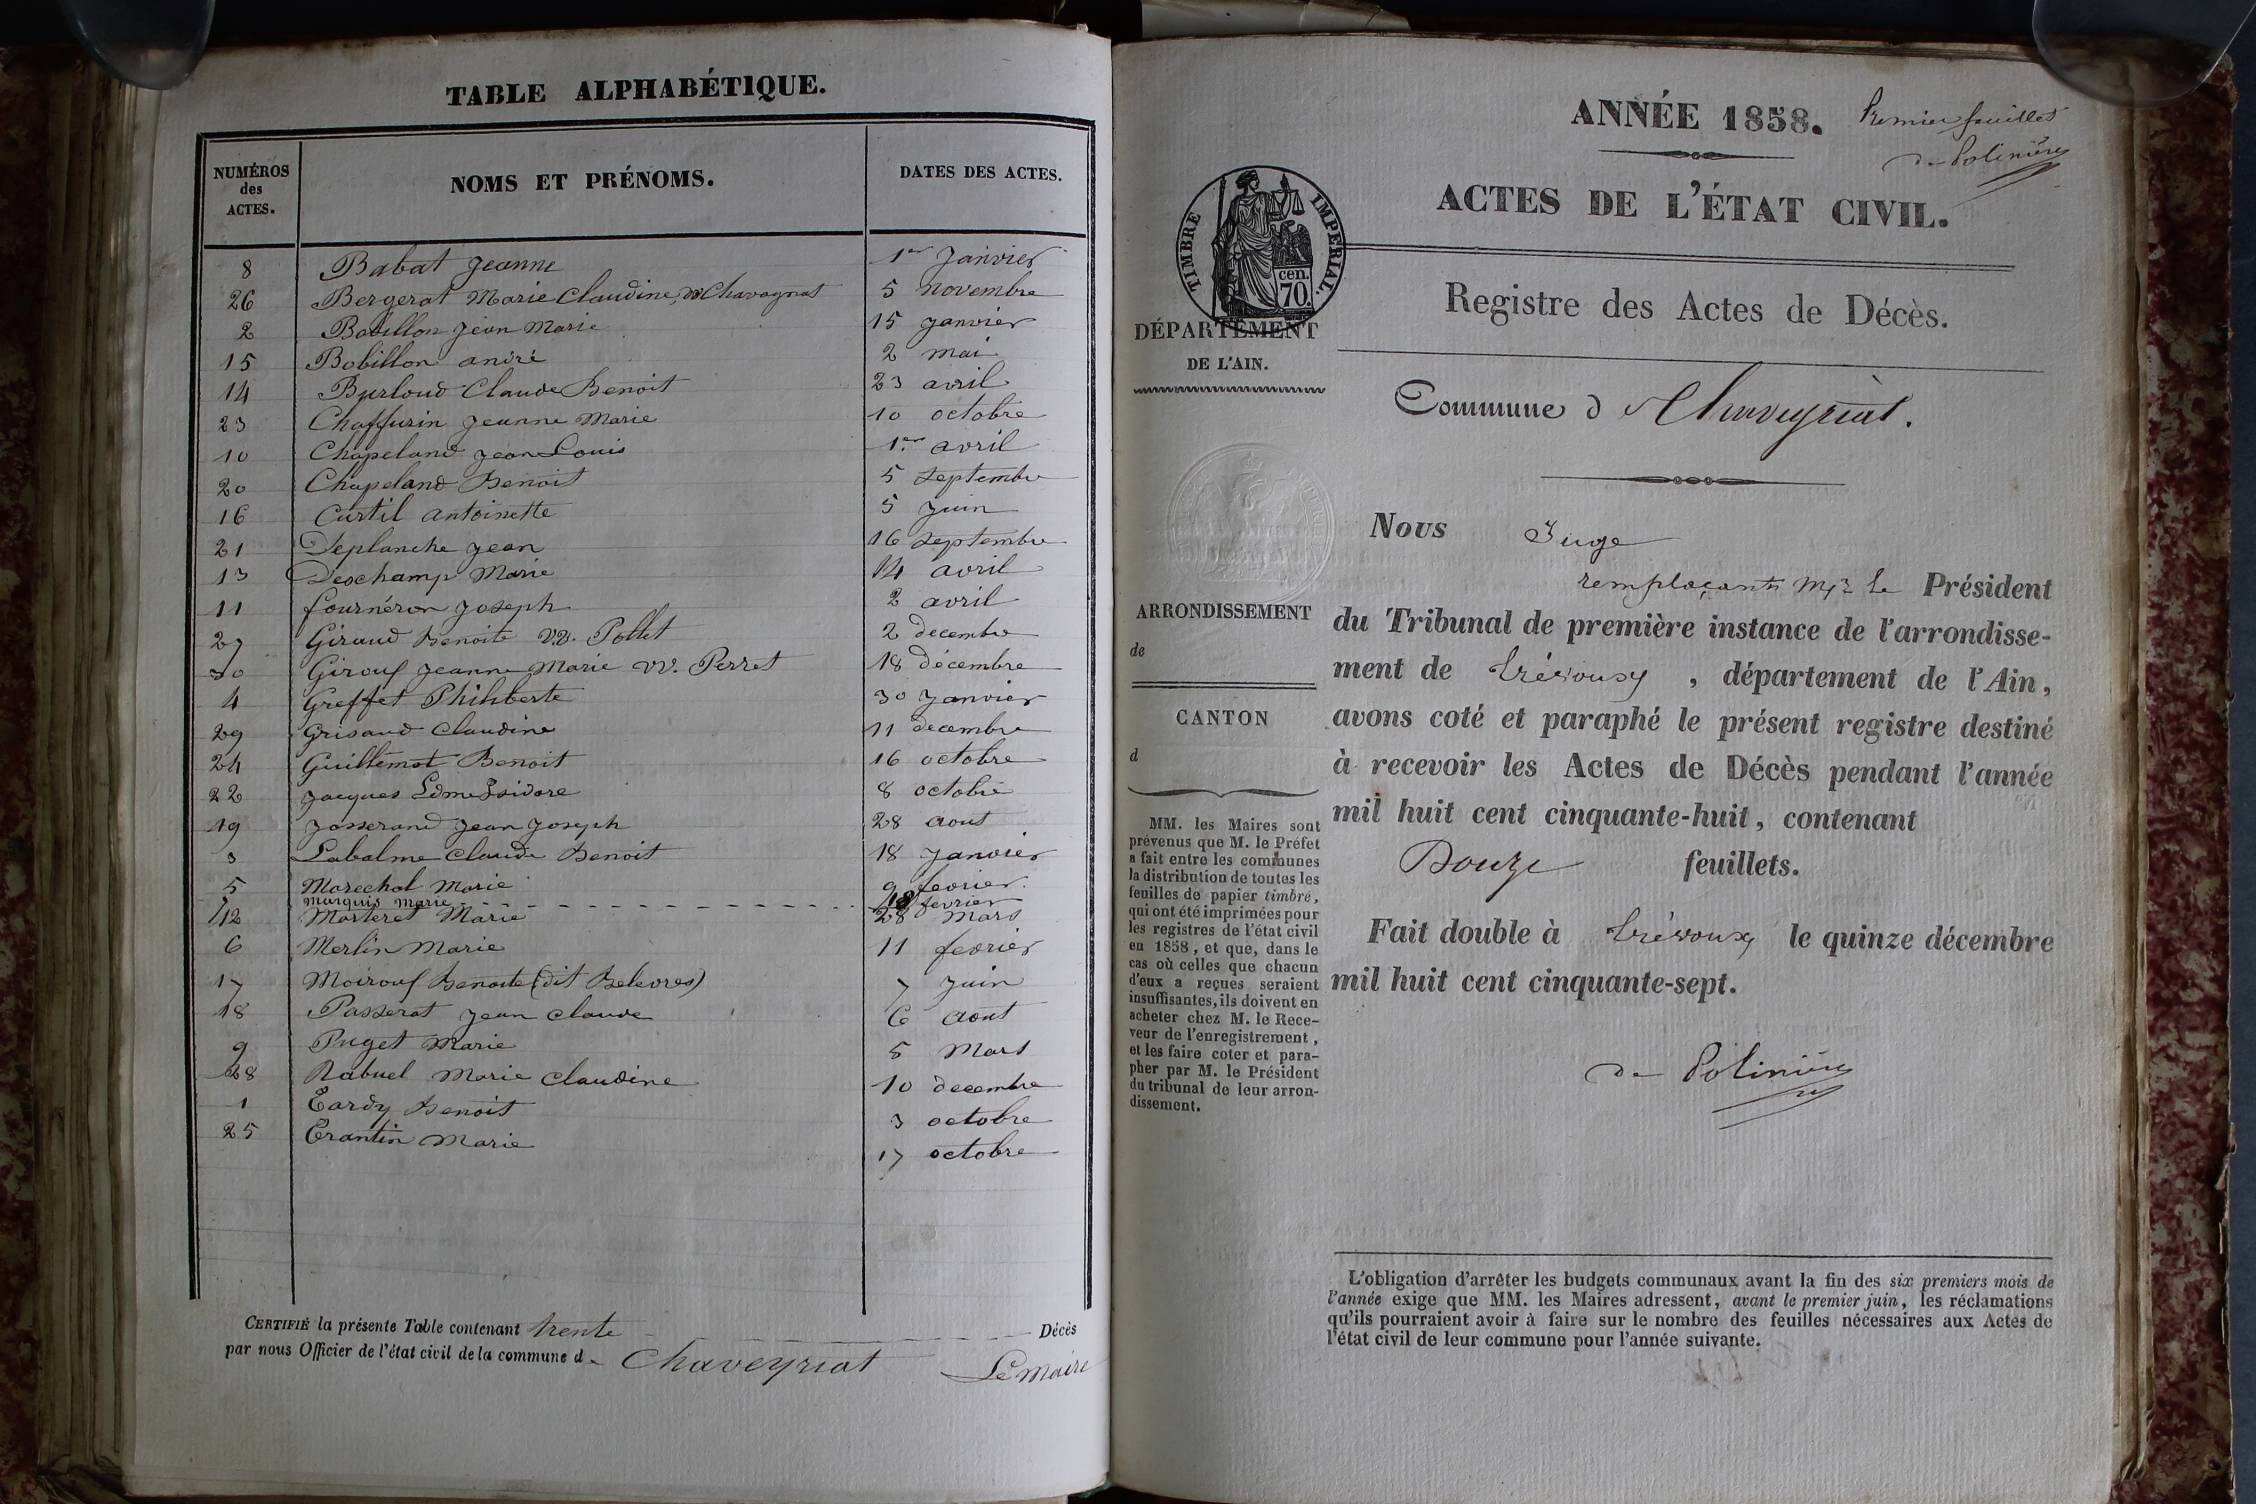 TABLE ALPHABÉTIQUE.
NUMÉROS des ACTES. NOMS ET PRÉNOMS. DATES DES ACTES.
8 Babat Jeanne 1er Janvier
26 Bergerat Marie Claudine, Chavagnat 5 novembre
2 Bobillon Jean Marie 15 janvier
15 Bobillon andré 2 mai
14 Burloud Claude Benoit 23 avril
23 Chaffurin Jeanne Marie 10 octobre
10 Chapeland Jean Louis 1er avril
20 Chapeland Benoit 5 septembre
16 Curtil antoinette 5 juin
21 Deplanche Jean 16 septembre
13 Deschamp Marie 14 avril
11 fournéron Joseph 2 avril
27 Giraud Benoite vv. Pollet 2 decembre
30 Girouf Jeanne Marie vv. Perret 18 décembre
4 Greffet Philiberte 30 janvier
29 Grisaud Claudine 11 decembre
24 Guillemot Benoit 16 octobre
22 Jacques Edme Isidore 8 octobre
19 Josserand Jean Joseph 28 aout
3 Labalme Claude Benoit 18 janvier
5 Marechal Marie 9 fevrier.
7 marquis marie 18 fevrier
12 Marteret Marie 28 Mars
6 Merlin Marie 11 fevrier
17 Moirouf Benoite (dit Belevres) 7 juin
18 Passerat Jean Claude 6 aout
9 Puget Marie 5 Mars
28 Rabuel Marie Claudine 10 decembre
1 Tardy Benoit 3 octobre
25 Trantin Marie 17 octobre
CERTIFIÉ la présente Table contenant trente Décès
par nous Officier de l'état civil de la commune de Chaveyriat Le Maire
ANNÉE 1858. Premier feuillet
de Polinière
ACTES DE L'ÉTAT CIVIL.
TIMBRE IMPERIAL.
cen.
70.
Registre des Actes de Décès.
DÉPARTEMENT
DE L'AIN.
Commune d Chaveyriat.
Nous Juge
remplaçant Mr le Président
du Tribunal de première instance de l'arrondisse-
ment de Trévoux, département de l'Ain,
avons coté et paraphé le présent registre destiné
à recevoir les Actes de Décès pendant l'année
mil huit cent cinquante-huit, contenant
Douze feuillets.
Fait double à Trévoux le quinze décembre
mil huit cent cinquante-sept.
de Polinière
ARRONDISSEMENT
de
CANTON
d
MM. les Maires sont
prévenus que M. le Préfet
a fait entre les communes
la distribution de toutes les
feuilles de papier timbré,
qui ont été imprimées pour
les registres de l'état civil
en 1858, et que, dans le
cas où celles que chacun
d'eux a reçues seraient
insuffisantes, ils doivent en
acheter chez M. le Rece-
veur de l'enregistrement,
et les faire coter et para-
pher par M. le Président
du tribunal de leur arron-
dissement.
L'obligation d'arrêter les budgets communaux avant la fin des six premiers mois de
l'année exige que MM. les Maires adressent, avant le premier juin, les réclamations
qu'ils pourraient avoir à faire sur le nombre des feuilles nécessaires aux Actes de
l'état civil de leur commune pour l'année suivante.